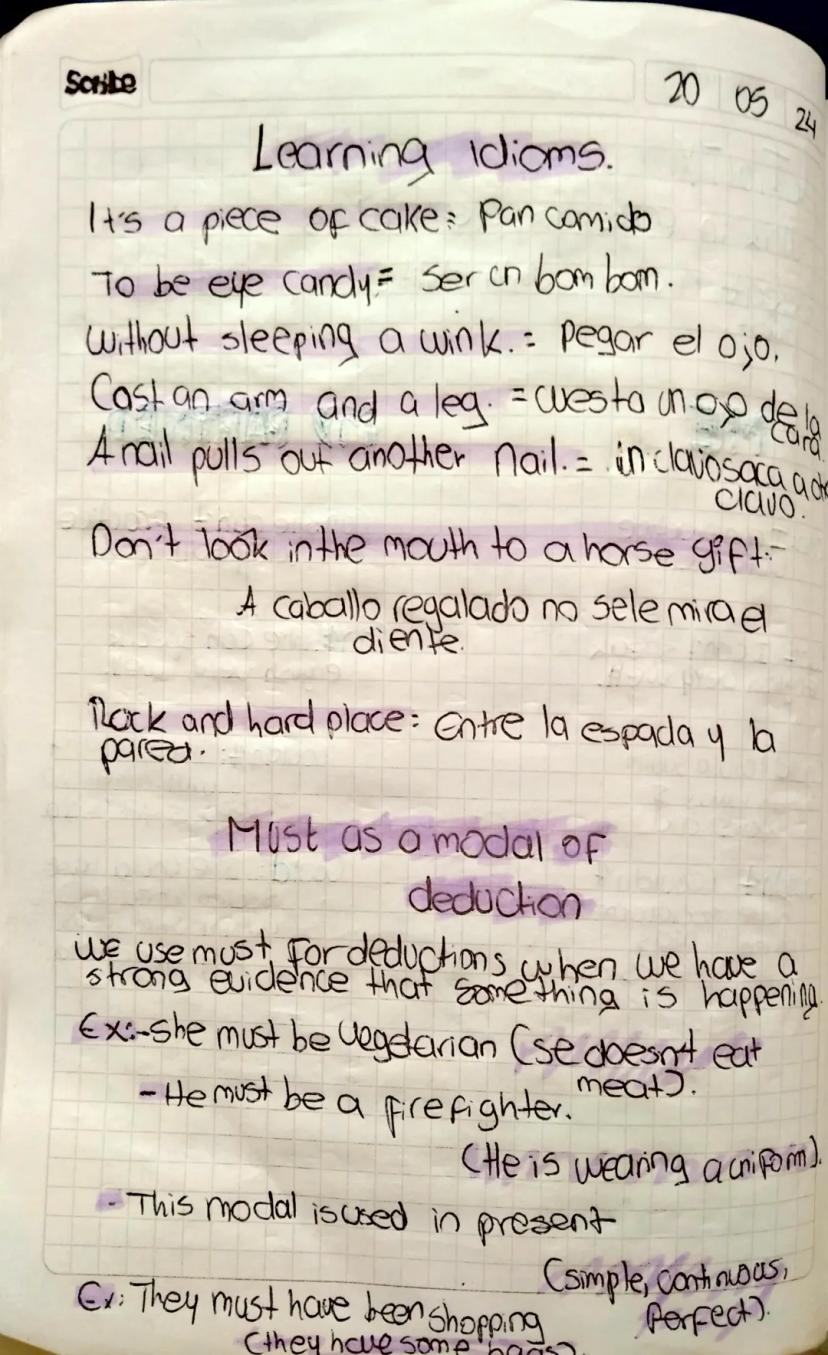 Scribe
20 05 24
Learning idioms.
It's a piece of cake: Pan comido
To be eye candy = Ser un bom bom.
Without sleeping a wink. = Pegar el ojo.
Cost an arm and a leg. = cuesta un ojo de la
cara
A nail pulls out another nail. = un clavo saca a
clavo.
Don't look in the mouth to a horse gift.-
A caballo regalado no se le mira el
diente.
Rock and hard place: Entre la espada y la
pared.
Must as a modal of
deduction
We use must for deductions when we have a
strong evidence that something is happening.
Ex:-She must be vegetarian (se doesn't eat
meat).
- He must be a firefighter.
(He is wearing a uniform).
- This modal is used in present
(simple, continuous,
Perfect).
Ex: They must have been shopping
(they have some bags)